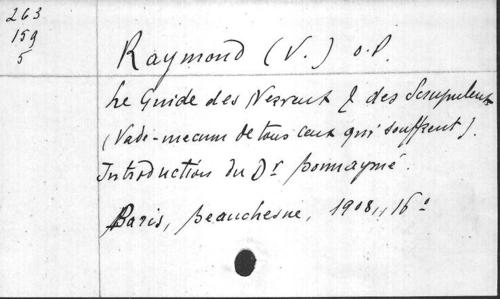 263
159
5
Raymond (V.) o.P.
Le Guide des Nerveux & des Scrupuleux
(Vade-mecum de tous ceux qui souffrent).
Introduction du Dr Bonnaymé.
Paris, Beauchesne, 1908,, 16°